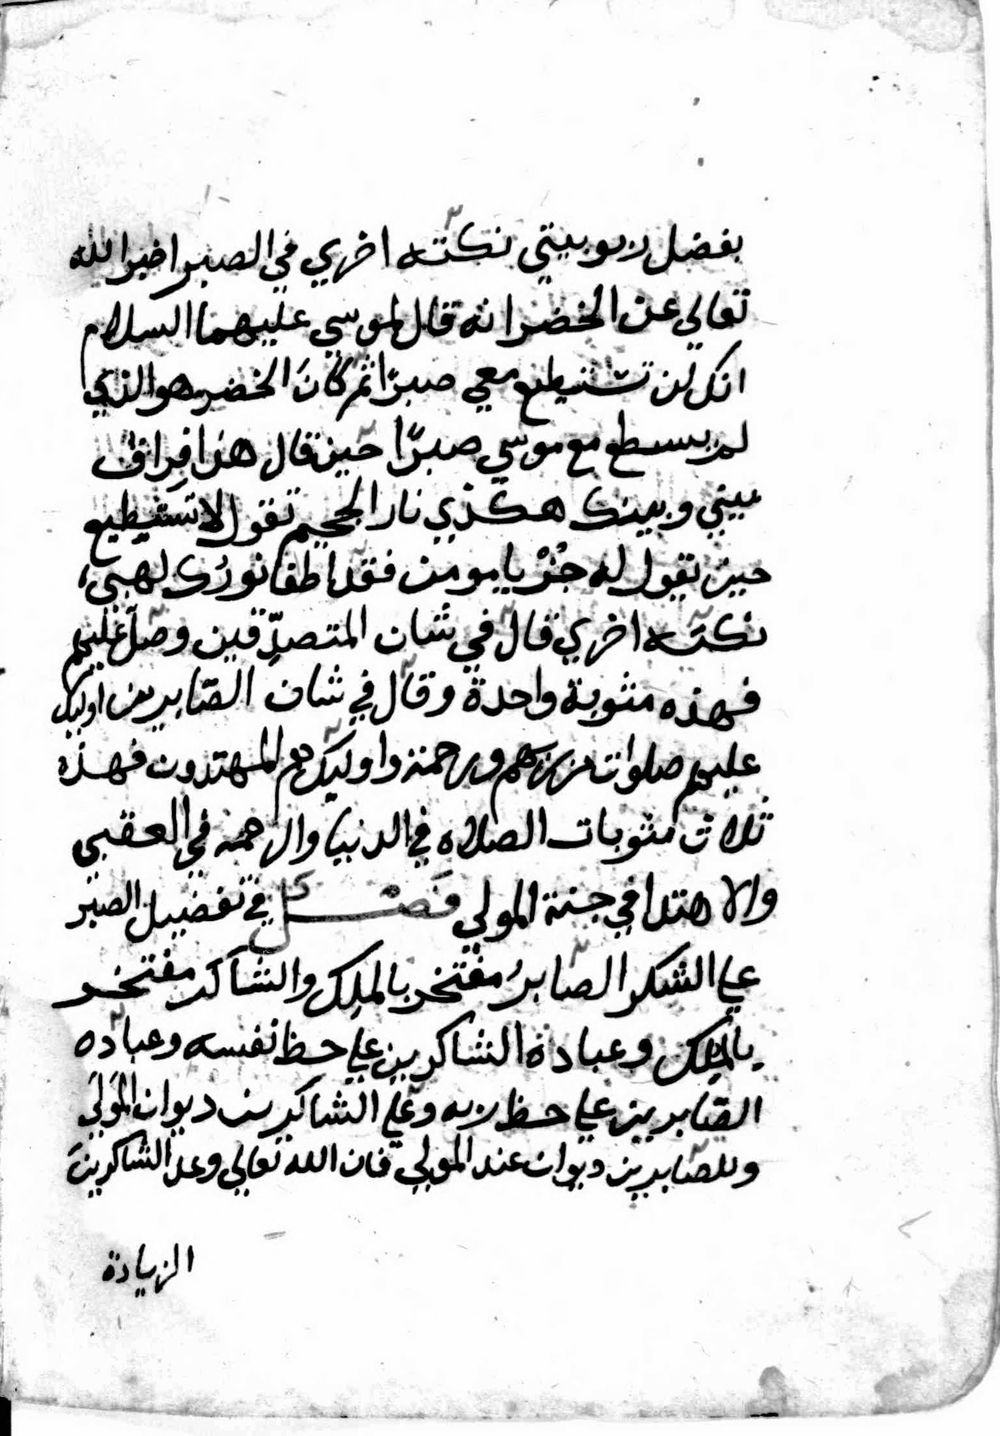 بفضل ربوبيتي نكته اخري في الصبر اخبر الله
تعالي عن الخضر انه قال لموسي عليهما السلام
انك لن تستطيع معي صبرًا ثم كانَ الخضر هو الذي
لم يسطع مع موسي صبرًّا حين قال هذا فِراق
بيني وبينك هكذي نار الجحيم تقول لا تستطيع
حين تقول له جُزْ يا مومن فقد اطفا نورُك لهبي
نكته اخري قال في شان المتصدِّقين وصل عليهم
فهذه مثوبة واحدة وقال في شان الصّابرين اوليك
عليهم صلوات من ربهم ورحمة واوليك هم المهتدون فهذه
ثلاث مثوبات الصلاه في الدنيا والرحمه في العقبي
والاهتدا في جنة المولي فَصْل في تفضيل الصبر
علي الشكر الصابرُ مفتخر بالملِك والشاكر مفتخر
بالمِلك وعبادة الشاكرين علي حظ نفسه وعباده
الصّابرين علي حظ ربه وعلي الشاكرين ديوان المَولَي
وللصّابرين ديوان عند المولي فان الله تعالي وعد الشاكرينَ
الزيادة